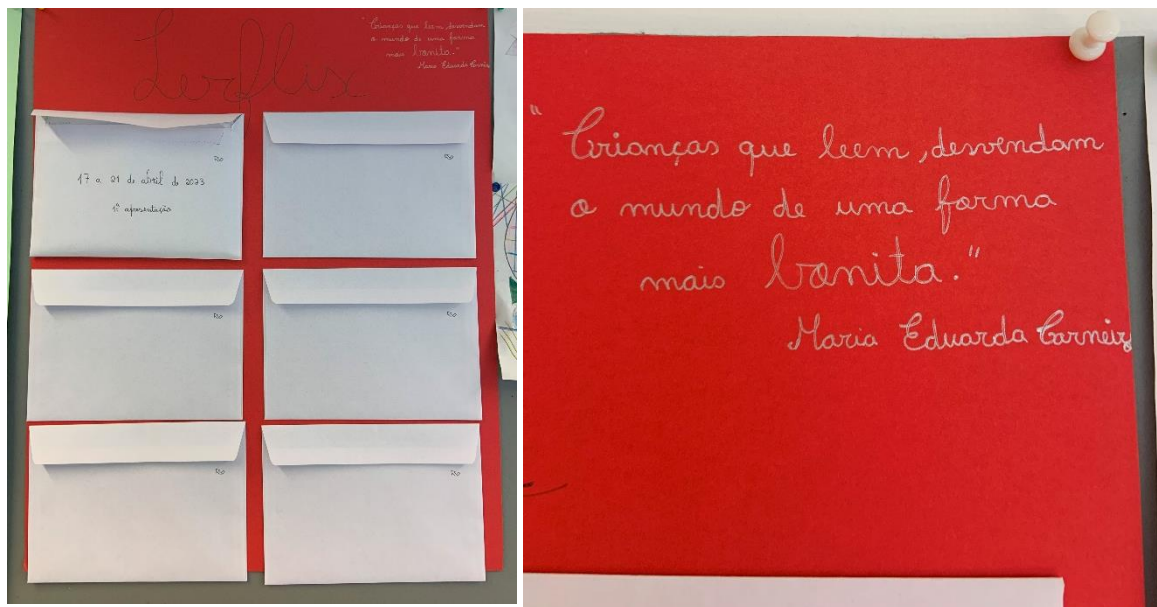 Lerflix
"Crianças que leem, desvendam
o mundo de uma forma
mais bonita."
Maria Eduarda Carneiro
17 a 21 de abril de 2023
1ª apresentação
"Crianças que leem, desvendam
o mundo de uma forma
mais bonita."
Maria Eduarda Carneiro